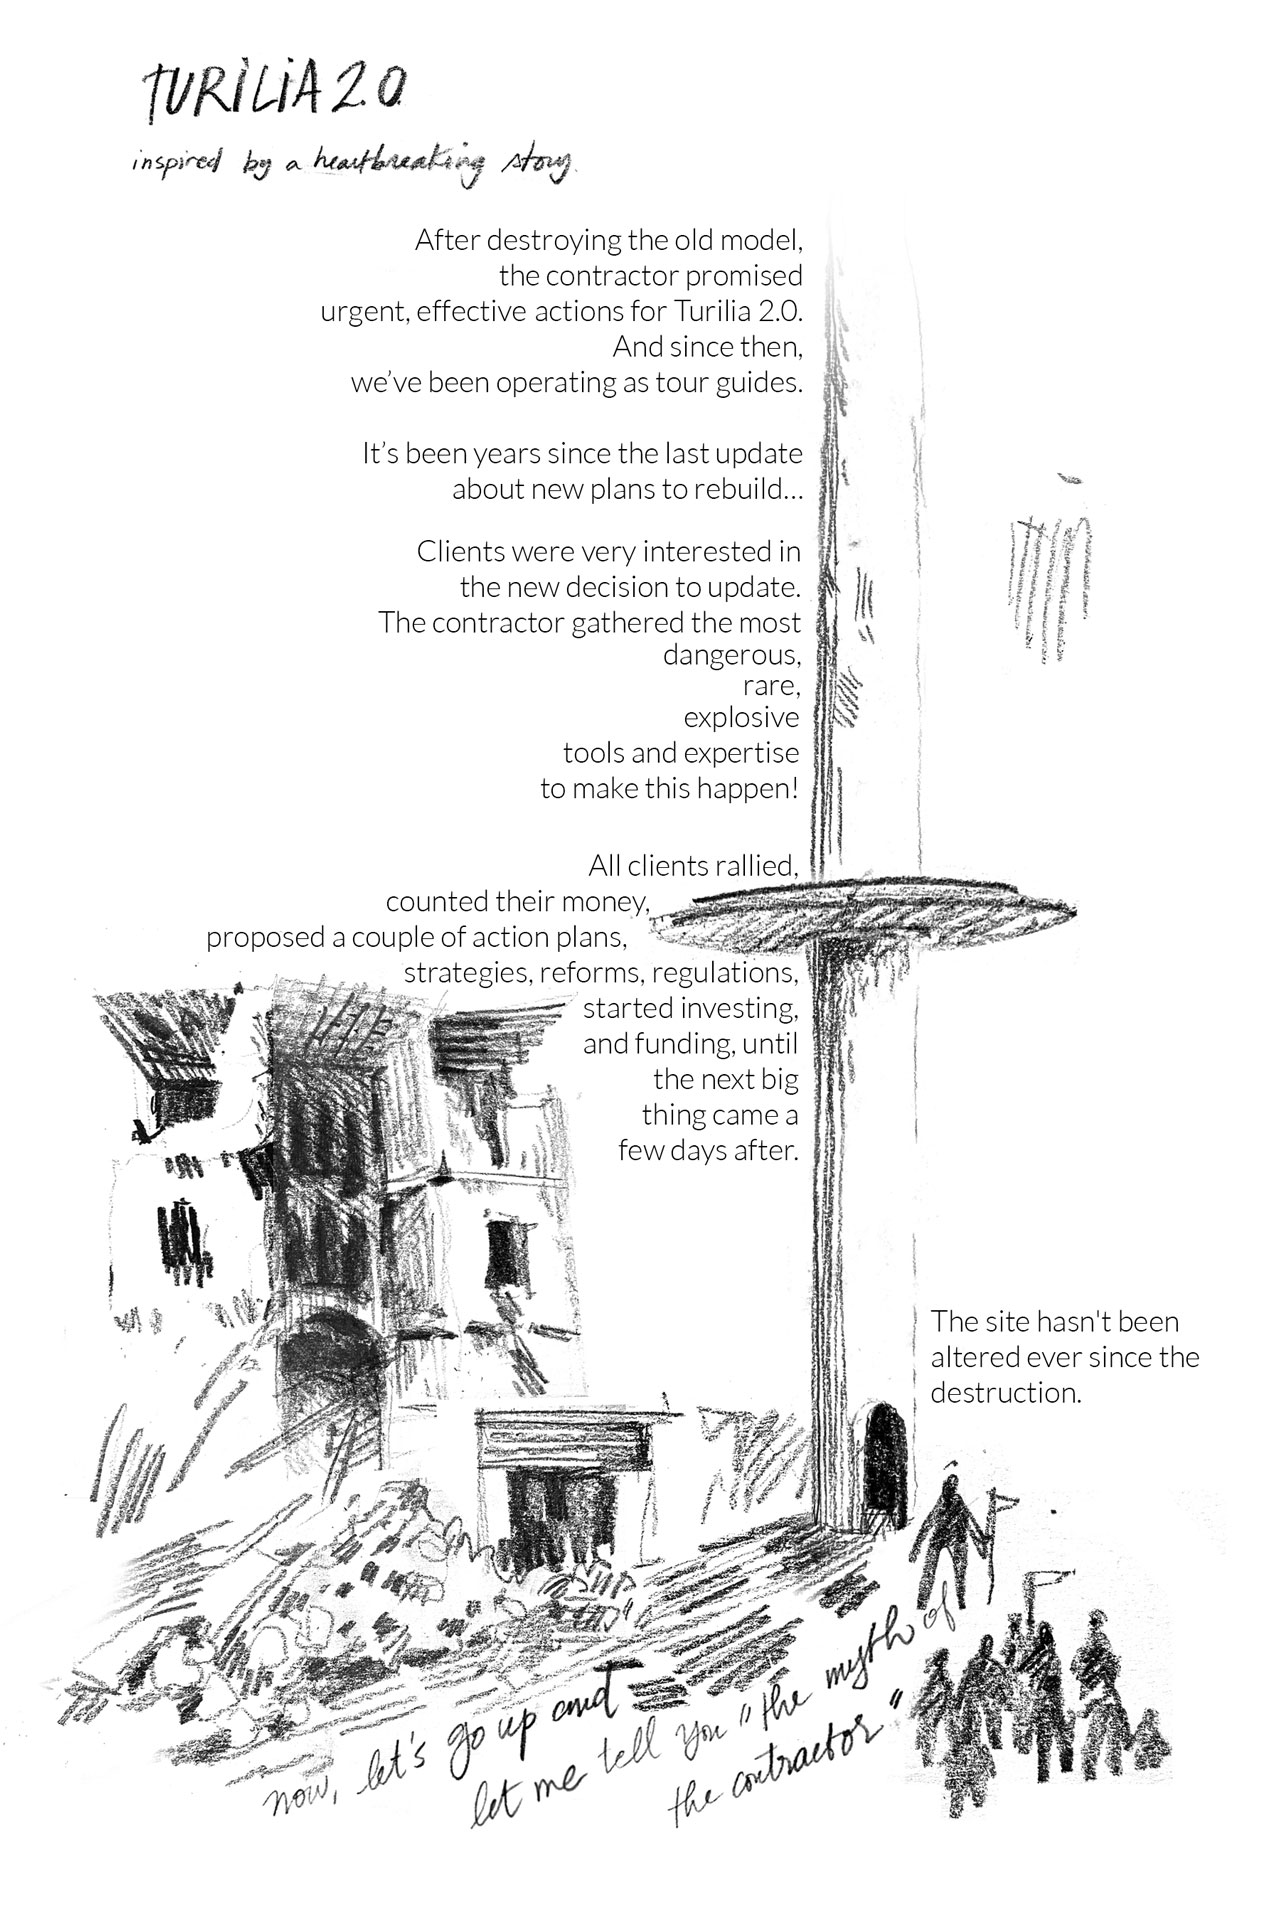 TURILIA 2.0
inspired by a heartbreaking story.
After destroying the old model,
the contractor promised
urgent, effective actions for Turilia 2.0.
And since then,
we’ve been operating as tour guides.
It’s been years since the last update
about new plans to rebuild...
Clients were very interested in
the new decision to update.
The contractor gathered the most
dangerous,
rare,
explosive
tools and expertise
to make this happen!
All clients rallied,
counted their money,
proposed a couple of action plans,
strategies, reforms, regulations,
started investing,
and funding, until
the next big
thing came a
few days after.
The site hasn't been
altered ever since the
destruction.
now, let's go up and
let me tell you "the myth of
the contractor"